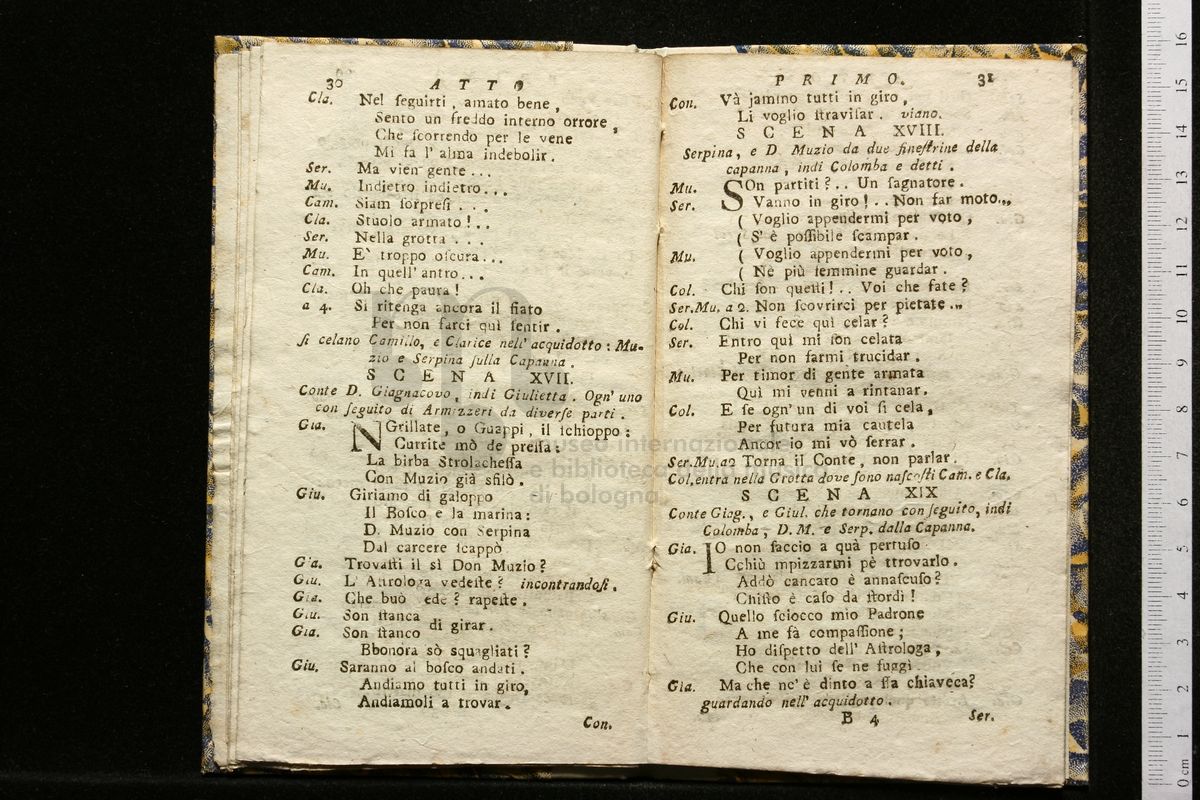 30 ATTO
Cla. Nel ſeguirti, amato bene,
Sento un freddo interno orrore,
Che ſcorrendo per le vene
Mi fa l' alma indebolir.
Ser. Ma vien gente...
Mu. Indietro indietro...
Cam. Siam ſorpreſi...
Cla. Stuolo armato!..
Ser. Nella grotta...
Mu. E` troppo oſcura...
Cam. In quell' antro...
Cla. Oh che paura!
a 4. Si ritenga ancora il fiato
Per non farci quì ſentir.
ſi celano Camillo, e Clarice nell' acquidotto: Mu-
zio e Serpina ſulla Capanna.
SCENA XVII.
Conte D. Giagnacovo, indi Giulietta. Ogn' uno
con ſeguito di Armizzeri da diverſe parti.
Gia. NGrillate, o Guappi, il ſchioppo:
Currite mò de preſſa:
La birba Strolacheſſa
Con Muzio già sfilò.
Giu. Giriamo di galoppo
Il Boſco e la marina:
D. Muzio con Serpina
Dal carcere ſcappò
Gia. Trovaſti il sì Don Muzio?
Giu. L' Aſtrologa vedeſte? incontrandoſi.
Gia. Che buò vede? rapeſte.
Giu. Son ſtanca
di girar.
Gia. Son ſtanco
Bbonora sò squagliati?
Giu. Saranno al boſco andati.
Andiamo tutti in giro,
Andiamoli a trovar.
Con.
PRIMO. 31
Con. Và jammo tutti in giro,
Li voglio ſtraviſar. viano.
SCENA XVIII.
Serpina, e D. Muzio da due fineſtrine della
capanna, indi Colomba e detti.
Mu. SOn partiti?.. Un ſagnatore.
Ser. Vanno in giro!.. Non far moto...
( Voglio appendermi per voto,
( S' è poſſibile ſcampar.
Mu. ( Voglio appendermi per voto,
( Nè più femmine guardar.
Col. Chi ſon queſti!.. Voi che fate?
Ser.Mu. a 2. Non ſcovrirci per pietate...
Col. Chi vi fece quì celar?
Ser. Entro quì mi ſon celata
Per non farmi trucidar.
Mu. Per timor di gente armata
Quì mi venni a rintanar.
Col. E ſe ogn' un di voi ſi cela,
Per futura mia cautela
Ancor io mi vò ſerrar.
Ser.Mu.a2 Torna il Conte, non parlar.
Col. entra nella Grotta dove ſono naſcoſti Cam. e Cla.
SCENA XIX
Conte Giag., e Giul. che tornano con ſeguito, indi
Colomba, D.M. e Serp. dalla Capanna.
Gia. IO non faccio a quà pertuſo
Cchiù mpizzarmi pè ttrovarlo.
Addò cancaro è annaſcuſo?
Chiſto è caſo da ſtordì!
Giu. Quello ſciocco mio Padrone
A me fà compaſſione;
Ho diſpetto dell' Aſtrologa,
Che con lui ſe ne fuggì.
Gia. Ma che nc' è dinto a ſſa chiaveca?
guardando nell' acquidotto.
B 4 Ser.
museo internazionale
e biblioteca della musica
di bologna